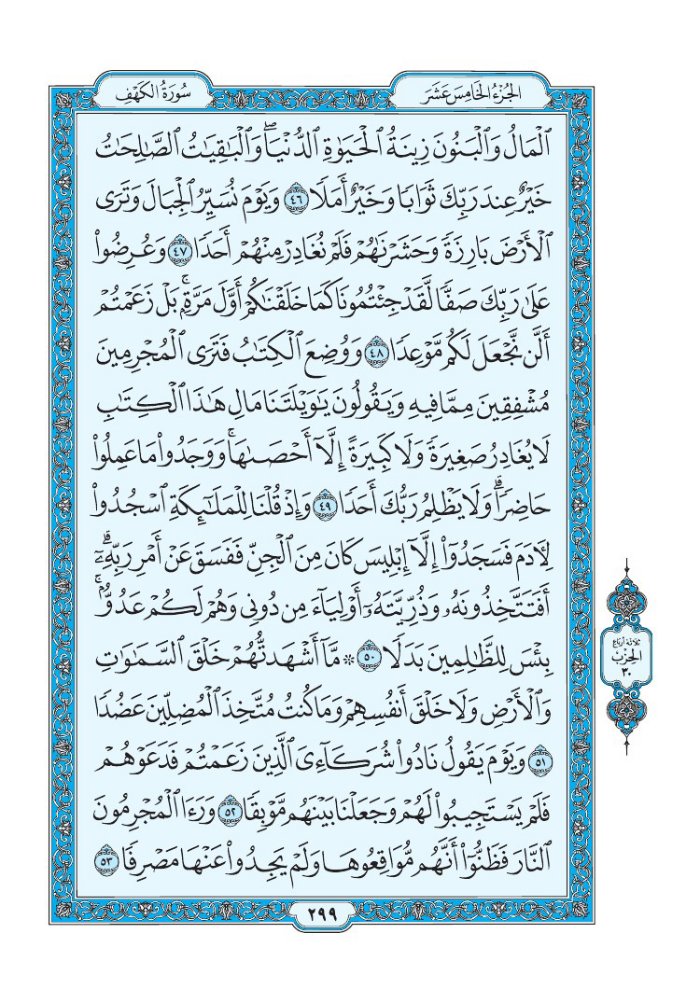 الجُزْءُ الخَامِسَ عَشَرَ
سُورَةُ الكَهْفِ
ٱلْمَالُ وَٱلْبَنُونَ زِينَةُ ٱلْحَيَوٰةِ ٱلدُّنْيَاۖ وَٱلْبَٰقِيَٰتُ ٱلصَّٰلِحَٰتُ
خَيْرٌ عِندَ رَبِّكَ ثَوَابًا وَخَيْرٌ أَمَلًا ٤٦ وَيَوْمَ نُسَيِّرُ ٱلْجِبَالَ وَتَرَى
ٱلْأَرْضَ بَارِزَةً وَحَشَرْنَٰهُمْ فَلَمْ نُغَادِرْ مِنْهُمْ أَحَدًا ٤٧ وَعُرِضُوا۟
عَلَىٰ رَبِّكَ صَفًّا لَّقَدْ جِئْتُمُونَا كَمَا خَلَقْنَٰكُمْ أَوَّلَ مَرَّةِۭۚ بَلْ زَعَمْتُمْ
أَلَّن نَّجْعَلَ لَكُم مَّوْعِدًا ٤٨ وَوُضِعَ ٱلْكِتَٰبُ فَتَرَى ٱلْمُجْرِمِينَ
مُشْفِقِينَ مِمَّا فِيهِ وَيَقُولُونَ يَٰوَيْلَتَنَا مَالِ هَٰذَا ٱلْكِتَٰبِ
لَا يُغَادِرُ صَغِيرَةً وَلَا كَبِيرَةً إِلَّآ أَحْصَىٰهَاۚ وَوَجَدُوا۟ مَا عَمِلُوا۟
حَاضِرًاۗ وَلَا يَظْلِمُ رَبُّكَ أَحَدًا ٤٩ وَإِذْ قُلْنَا لِلْمَلَٰٓئِكَةِ ٱسْجُدُوا۟
لِءَادَمَ فَسَجَدُوٓا۟ إِلَّآ إِبْلِيسَ كَانَ مِنَ ٱلْجِنِّ فَفَسَقَ عَنْ أَمْرِ رَبِّهِۦٓۗ
أَفَتَتَّخِذُونَهُۥ وَذُرِّيَّتَهُۥٓ أَوْلِيَآءَ مِن دُونِى وَهُمْ لَكُمْ عَدُوُّۢۚ
بِئْسَ لِلظَّٰلِمِينَ بَدَلًا ٥٠ ۞ مَّآ أَشْهَدتُّهُمْ خَلْقَ ٱلسَّمَٰوَٰتِ
وَٱلْأَرْضِ وَلَا خَلْقَ أَنفُسِهِمْ وَمَا كُنتُ مُتَّخِذَ ٱلْمُضِلِّينَ عَضُدًا
٥١ وَيَوْمَ يَقُولُ نَادُوا۟ شُرَكَآءِىَ ٱلَّذِينَ زَعَمْتُمْ فَدَعَوْهُمْ
فَلَمْ يَسْتَجِيبُوا۟ لَهُمْ وَجَعَلْنَا بَيْنَهُم مَّوْبِقًا ٥٢ وَرَءَا ٱلْمُجْرِمُونَ
ٱلنَّارَ فَظَنُّوٓا۟ أَنَّهُم مُّوَاقِعُوهَا وَلَمْ يَجِدُوا۟ عَنْهَا مَصْرِفًا ٥٣
ثلاثة أرباع
الحزب
٣٠
٢٩٩